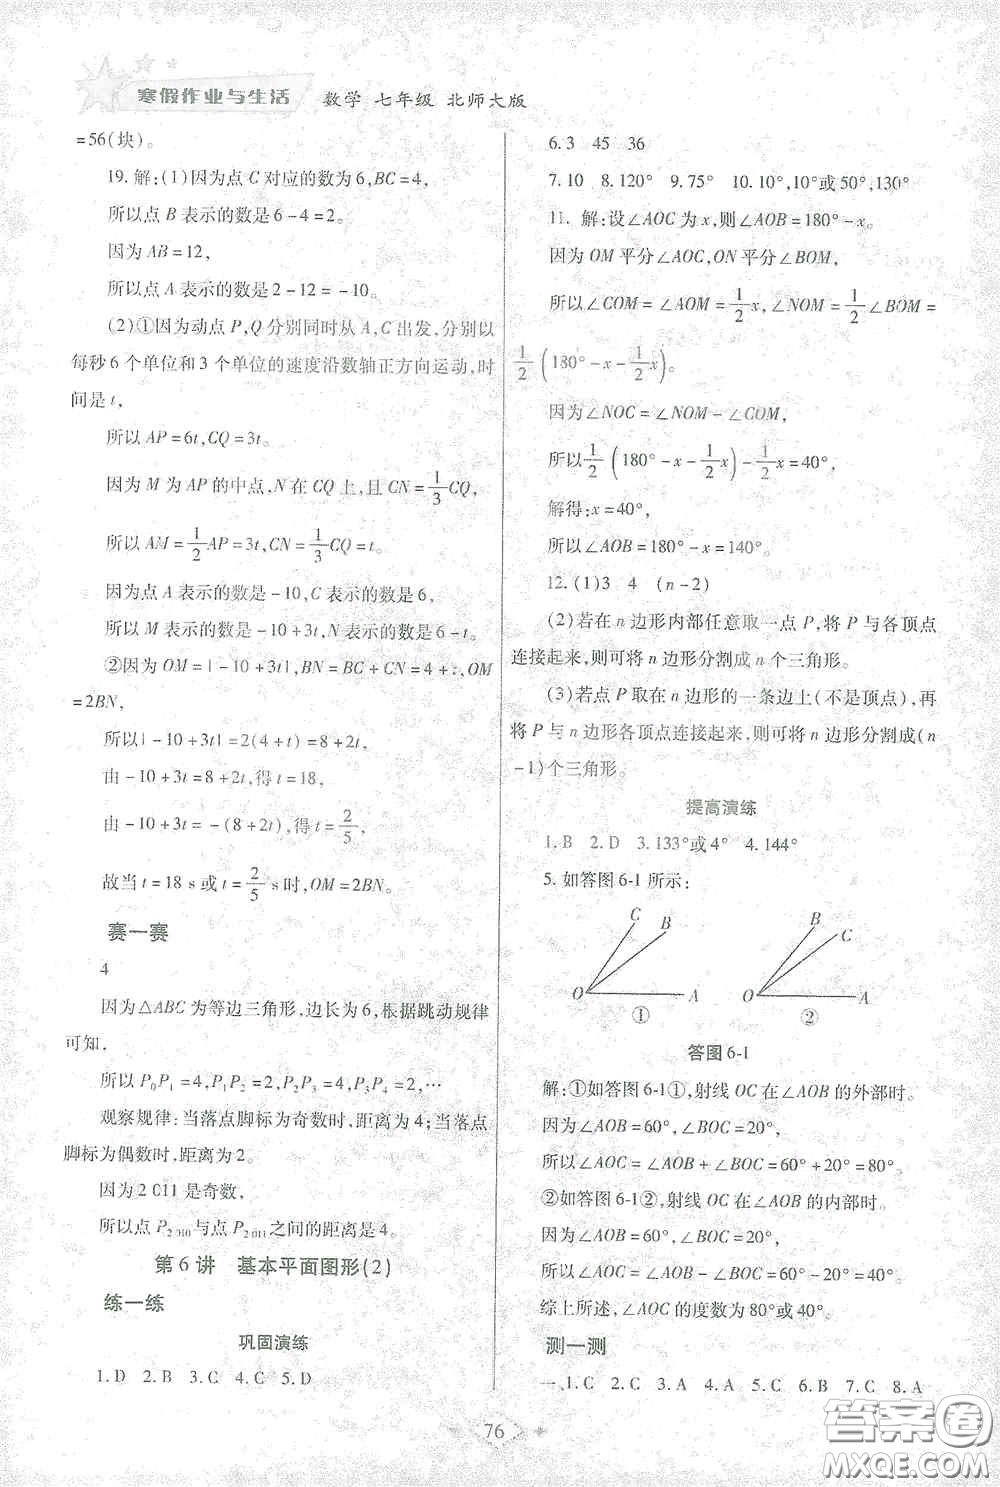 寒假作业与生活 数学 七年级 北师大版
=56(块)。
19.解:(1)因为点 C 对应的数为 6,BC=4,
所以点 B 表示的数是 6-4=2。
因为 AB=12,
所以点 A 表示的数是 2-12=-10。
(2)①因为动点 P,Q 分别同时从 A,C 出发,分别以
每秒 6 个单位和 3 个单位的速度沿数轴正方向运动,时
间是 t,
所以 AP=6t,CQ=3t。
因为 M 为 AP 的中点,N 在 CQ 上,且 CN=1/3CQ,
所以 AM=1/2AP=3t,CN=1/3CQ=t。
因为点 A 表示的数是-10,C 表示的数是 6,
所以 M 表示的数是-10+3t,N 表示的数是 6+t。
②因为 OM=|-10+3t|,BN=BC+CN=4+t,OM
=2BN,
所以|-10+3t|=2(4+t)=8+2t,
由-10+3t=8+2t,得 t=18,
由-10+3t=-(8+2t),得 t=2/5,
故当 t=18 s 或 t=2/5 s 时,OM=2BN。
赛一赛
4
因为△ABC 为等边三角形,边长为 6,根据跳动规律
可知,
所以 P₀P₁=4,P₁P₂=2,P₂P₃=4,P₃P₄=2,…
观察规律:当落点脚标为奇数时,距离为 4;当落点
脚标为偶数时,距离为 2。
因为 2 011 是奇数,
所以点 P₂ ₀₁₀ 与点 P₂ ₀₁₁ 之间的距离是 4。
第 6 讲 基本平面图形(2)
练一练
巩固演练
1.D 2.B 3.C 4.C 5.D
6.3 45 36
7.10 8.120° 9.75° 10.10°,10°或 50°,130°
11. 解:设∠AOC 为 x,则∠AOB=180°-x。
因为 OM 平分∠AOC,ON 平分∠BOM,
所以∠COM=∠AOM=1/2x,∠NOM=1/2∠BOM=
1/2(180°-x-1/2x)。
因为∠NOC=∠NOM-∠COM,
所以1/2(180°-x-1/2x)-1/2x=40°,
解得:x=40°,
所以∠AOB=180°-x=140°。
12.(1)3 4 (n-2)
(2)若在 n 边形内部任意取一点 P,将 P 与各顶点
连接起来,则可将 n 边形分割成 n 个三角形。
(3)若点 P 取在 n 边形的一条边上(不是顶点),再
将 P 与 n 边形各顶点连接起来,则可将 n 边形分割成(n
-1)个三角形。
提高演练
1.B 2.D 3.133°或 4° 4.144°
5. 如答图 6-1 所示:
C B O A ①
B C O A ②
答图 6-1
解:①如答图 6-1①,射线 OC 在∠AOB 的外部时。
因为∠AOB=60°,∠BOC=20°,
所以∠AOC=∠AOB+∠BOC=60°+20°=80°。
②如答图 6-1②,射线 OC 在∠AOB 的内部时。
因为∠AOB=60°,∠BOC=20°,
所以∠AOC=∠AOB-∠BOC=60°-20°=40°。
综上所述,∠AOC 的度数为 80°或 40°。
测一测
一、1.C 2.C 3.A 4.A 5.A 6.B 7.C 8.A
76
答案圈
MXQE.COM